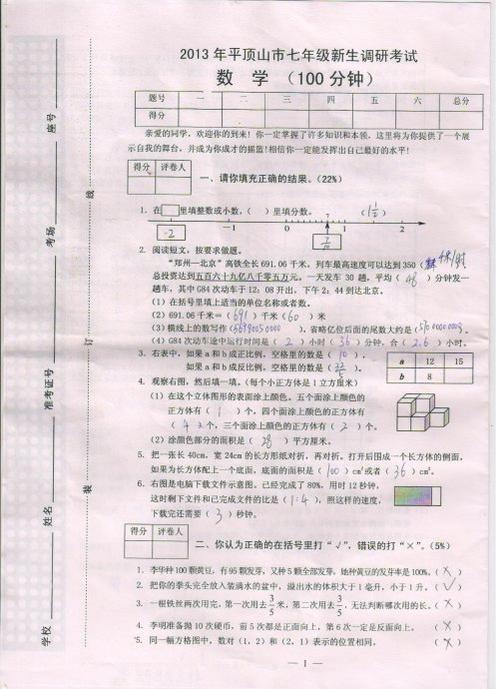 2013年平顶山市七年级新生调研考试
数 学 （100分钟）
题号 一 二 三 四 五 六 总分
得分
亲爱的同学，欢迎你的到来！你一定掌握了许多知识和本领，这里将为你提供了一个展
示自我的舞台，并成为你成才的摇篮！相信你一定能发挥出自己最好的水平！
得分 评卷人
一、请你填充正确的结果。（22%）
1. 在□里填整数或小数，（ ）里填分数。 （1½）
-2 -1 0 1 2
2. 阅读短文，按要求做题。
“郑州—北京”高铁全长691.06千米，列车最高速度可以达到350（千米/时
总投资达到五百六十九亿八千零五万元。一天发车 30 趟，平均（48）分钟发一
趟车，其中G84次动车于12：08开出，下午2：44到达北京。
(1) 在括号里填上适当的单位名称或者数。
(2) 691.06千米=（691）千米（60）米
(3) 横线上的数写作（56980050000），省略亿位后面的尾数大约是（
(4) G84次动车途中运行时间是（2）小时（36）分钟，合（2.6）小时。
3. 右表中，如果a和b成正比例，空格里的数是（10）。
如果a和b成反比例，空格里的数是（
a 12 15
b 8
4. 观察右图，然后填一填。（每个小正方体是1立方厘米）
(1) 在这个立方体图形的表面涂上颜色。五个面涂上颜色的
正方体有（1）个。四个面涂上颜色的正方体有
（4）个，三个面涂上颜色的正方体有（2）个。
(2) 涂颜色部分的面积是（28）平方厘米。
5. 把一张长40cm，宽24cm的长方形纸对折，再对折。打开后围成一个长方体的侧面，
如果为长方体配上一个底面，底面的面积是（100）cm²或者（36）cm²。
6. 右图是电脑下载文件示意图。已经完成了80%，用时12秒钟，
这时剩下文件和已完成文件的比是（1:4），照这样的速度，
下载完还需要（3）秒钟。
得分 评卷人
二、你认为正确的在括号里打“√”，错误的打“×”。（5%）
1. 李华种100颗黄豆，有95颗发芽，又种5颗全部发芽，她种黄豆的发芽率是100%。（×）
2. 把你的拳头完全放入装满水的盆中，溢出水的体积大于1毫升，小于1升。（√）
3. 一根铁丝两次用完，第一次用去3/5米，第二次用去3/5，无法判断哪次用的长。（×）
4. 李明准备抛10次硬币，前5次都是正面向上，第6次一定是反面向上。（×）
5. 同一幅方格图中，数对（1，2）和（2，1）表示的位置相同。（×）
— 1 —
学校
姓名
准考证号
考场
座号
装
订
线